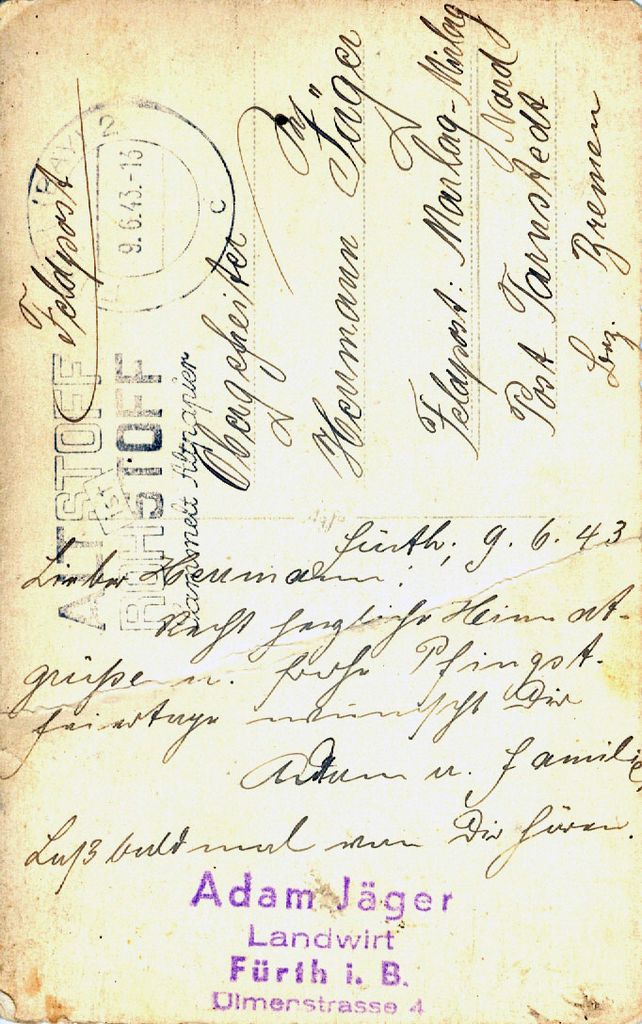 Feldpost
9.6.43.-13
c
ALTSTOFF
ROHSTOFF
Sammelt Altpapier
Obergefreiter
Hermann Jäger
Feldpost: Marlag-Milag
Nord
Post Tarnstedt
Bez. Bremen
Fürth, 9. 6. 43
Lieber Hermann!
Recht herzliche Heimat-
grüße u. frohe Pfingst-
feiertage wünscht Dir
Adam u. Familie,
Laß bald mal von Dir hören.
Adam Jäger
Landwirt
Fürth i. B.
Ulmenstrasse 4